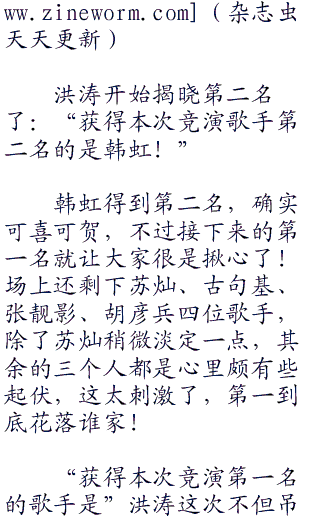 ww.zineworm.com]（杂志虫
天天更新）
洪涛开始揭晓第二名
了：“获得本次竞演歌手第
二名的是韩虹！”
韩虹得到第二名，确实
可喜可贺，不过接下来的第
一名就让大家很是揪心了！
场上还剩下苏灿、古句基、
张靓影、胡彦兵四位歌手，
除了苏灿稍微淡定一点，其
余的三个人都是心里颇有些
起伏，这太刺激了，第一到
底花落谁家！
“获得本次竞演第一名
的歌手是”洪涛这次不但吊